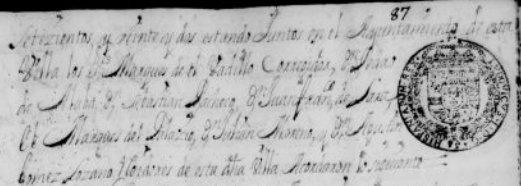 87
setezientos, y veinte y dos estando Juntos en el Aiuntamiento de esta
Villa los Sres Marques de el Vadillo Corregidor, Dn
de Dn Sebastian Pacheco, Dn Juan de
el Marques del Palazio, Dn Julian Moreno, y Dn
Gomez Lozano Rexidores de esta dha Villa Acordaron lo siguiente